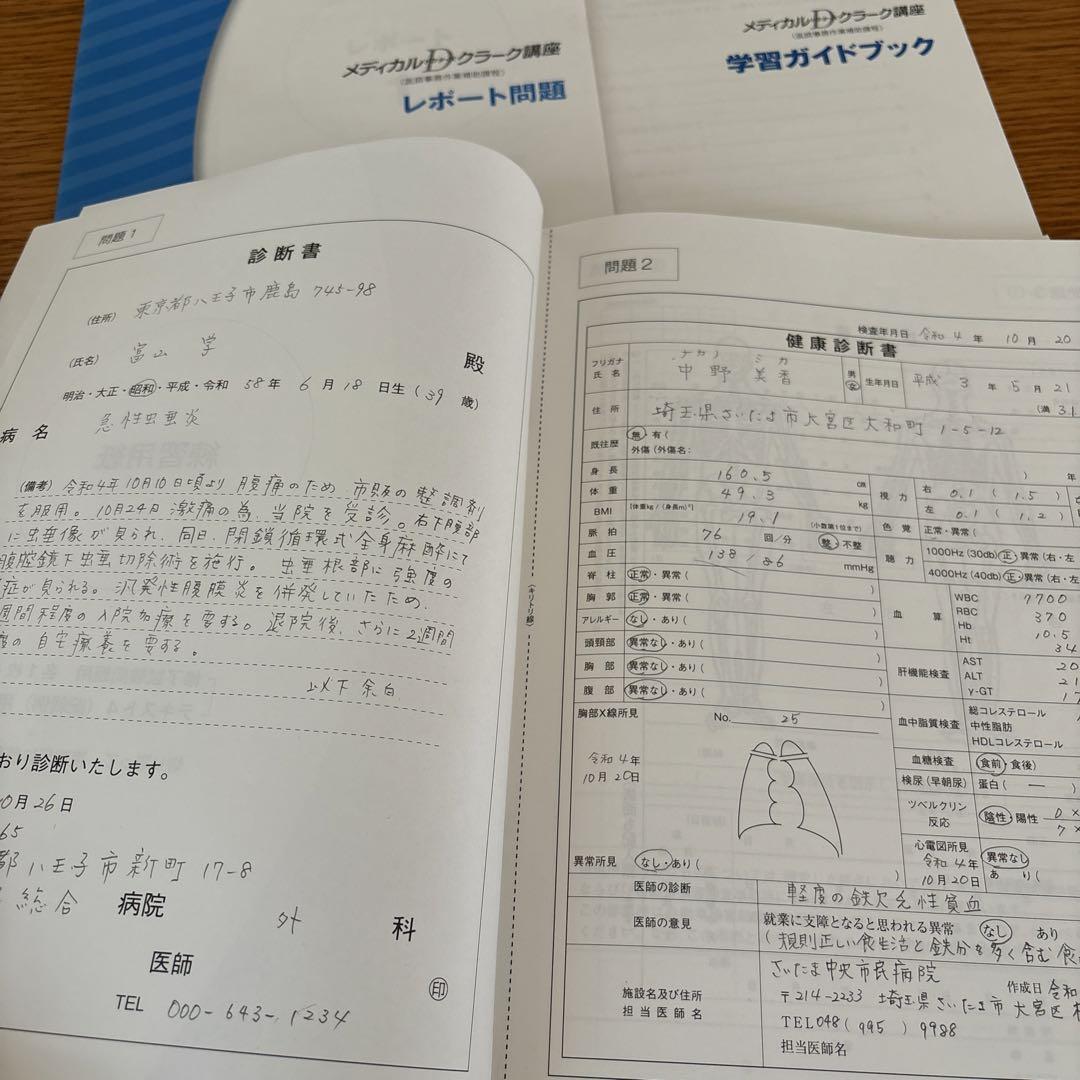 メディカルDクラーク講座
(医師事務作業補助課程)
レポート問題
メディカルDクラーク講座
(医師事務作業補助課程)
学習ガイドブック
問題1
診断書
(住所) 東京都八王子市鹿島 745-98
(氏名) 富山 学 殿
明治・大正・昭和・平成・令和 58年 6月18日生(39歳)
病名 急性虫垂炎
(備考) 令和4年10月10日頃より 腹痛のため 市販の整調剤
を服用。10月24日 激痛の為、当院を受診。右下腹部
に虫垂像が見られ、同日、閉鎖循環式全身麻酔にて
腹腔鏡下虫垂切除術を施行。虫垂根部に強度の
症が見られる。汎発性腹膜炎を併発していたため、
週間程度の入院加療を要する。退院後、さらに2週間
度の自宅療養を要する。
以下余白
おり診断いたします。
0月26日
65
都八王子市新町 17-8
総合 病院 外 科
医師 印
TEL 000-643-1234
(キリトリ線)
問題2
検査年月日 令和4年 10月 20
健康診断書
フリガナ ナカノ ミカ
氏名 中野 美香 男・女 生年月日 平成 3年 5月 21
(満31
住所 埼玉県さいたま市大宮区大和町 1-5-12
既往歴 無・有(
外傷(外傷名: ) 年
身長 160.5 cm
体重 49.3 kg
BMI [体重kg/(身長m)²] 19.1 (小数第1位まで)
脈拍 76 回/分 整・不整
血圧 138 86 mmHg
脊柱 正常・異常( )
胸郭 正常・異常( )
アレルギー なし・あり( )
頭頸部 異常なし・あり( )
胸部 異常なし・あり( )
腹部 異常なし・あり( )
視力 右 0.1 (1.5)
左 0.1 (1.2)
色覚 正常・異常(
聴力 1000Hz (30db) 正・異常(右・左
4000Hz (40db) 正・異常(右・左
血算 WBC 7700
RBC 370
Hb 10.5
Ht 34
肝機能検査 AST 20
ALT 21
γ-GT 17
血中脂質検査 総コレステロール
中性脂肪
HDLコレステロール
血糖検査 (食前・食後)
検尿(早朝尿) 蛋白( ー )
ツベルクリン反応 陰性・陽性 0×
7×
心電図所見 異常なし
令和4年 あり(
10月20日
胸部X線所見 No. 25
令和4年
10月20日
異常所見 なし・あり( )
医師の診断 軽度の鉄欠乏性貧血
医師の意見 就業に支障となると思われる異常 なし あり
(規則正しい食生活と鉄分を多く含む食
施設名及び住所
担当医師名
さいたま中央市民病院 作成日 令和
〒214-2233 埼玉県さいたま市大宮区
TEL048(995)9988
担当医師名